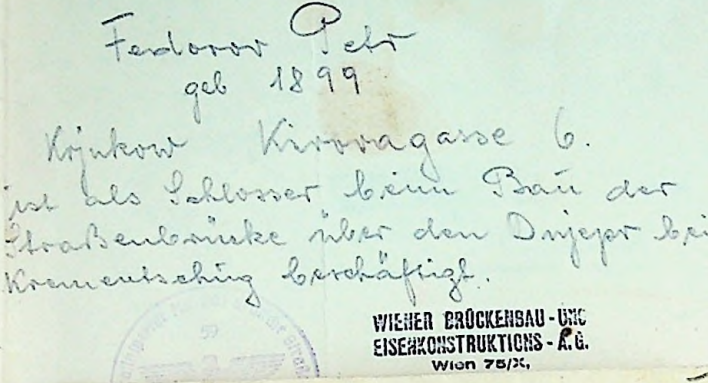 Fedorov Petr
geb 1899
Krjukow Kirovagasse 6.
ist als Schlosser beim Bau der
Straßenbrücke über den Dnjepr bei
Krementschug beschäftigt.
59
WIENER BRÜCKENBAU-UND
EISENKONSTRUKTIONS-A.G.
Wien 75/X,